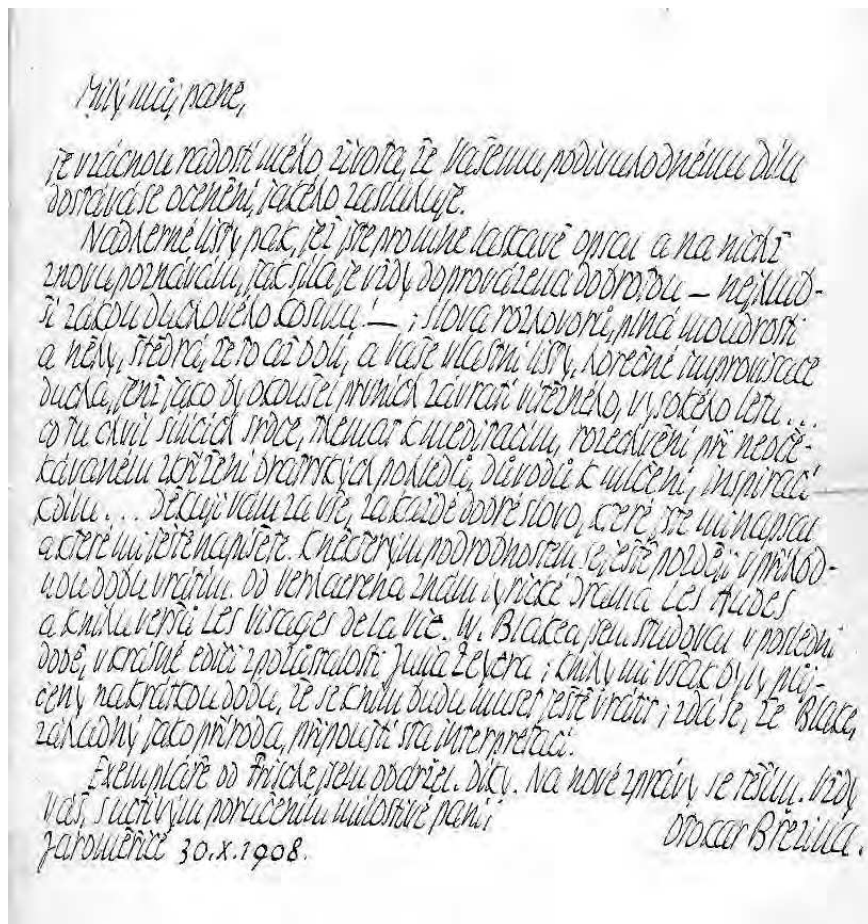 Milý můj pane,
je vzácnou radostí mého života, že Vašemu podivuhodnému dílu
dostává se ocenění, jakého zasluhuje.
Nádherné listy pak, jež jste pro mne laskavě opsal a na nichž
znovu poznávám, jak síla je vždy doprovázena dobrotou — nejhlub-
ší zákon duchového kosmu! — ; slova rozhovorů, plná moudrosti
a něhy, štědrá, že to až bolí, a Vaše vlastní listy, horečné improvisace
ducha, jenž jako by okoušel prvních závratí vítězného, vysokého letu...
co tu chvil sílících srdce, themat k meditacím, rozechvění při neoče-
kávaném zkřížení drah myšlenek, důvodů k mlčení, inspirací
k dílu... Děkuji Vám za vše, za každé dobré slovo, které jste mi napsal
a které mi ještě napíšete. K některým podrobnostem se ještě později v příhod-
nou dobu vrátím. Od Verhaerena znám lyrické drama Les Aubes
a knihu veršů Les Visages de la Vie. W. Blakea jsem studoval v poslední
době, v krásné edici z pozůstalosti Julia Zeyera; knihy mi však byly půj-
čeny na krátkou dobu, že se k nim budu muset ještě vrátit; zdá se, že Blake,
záhadný jako příroda, připouští sta interpretací.
Exempláře od Frische jsem obdržel. Díky. Na nové zprávy se těším. Vždy
Váš, s uctivým poručením milostivé paní;
Otokar Březina.
Jaroměřice 30.X.1908.